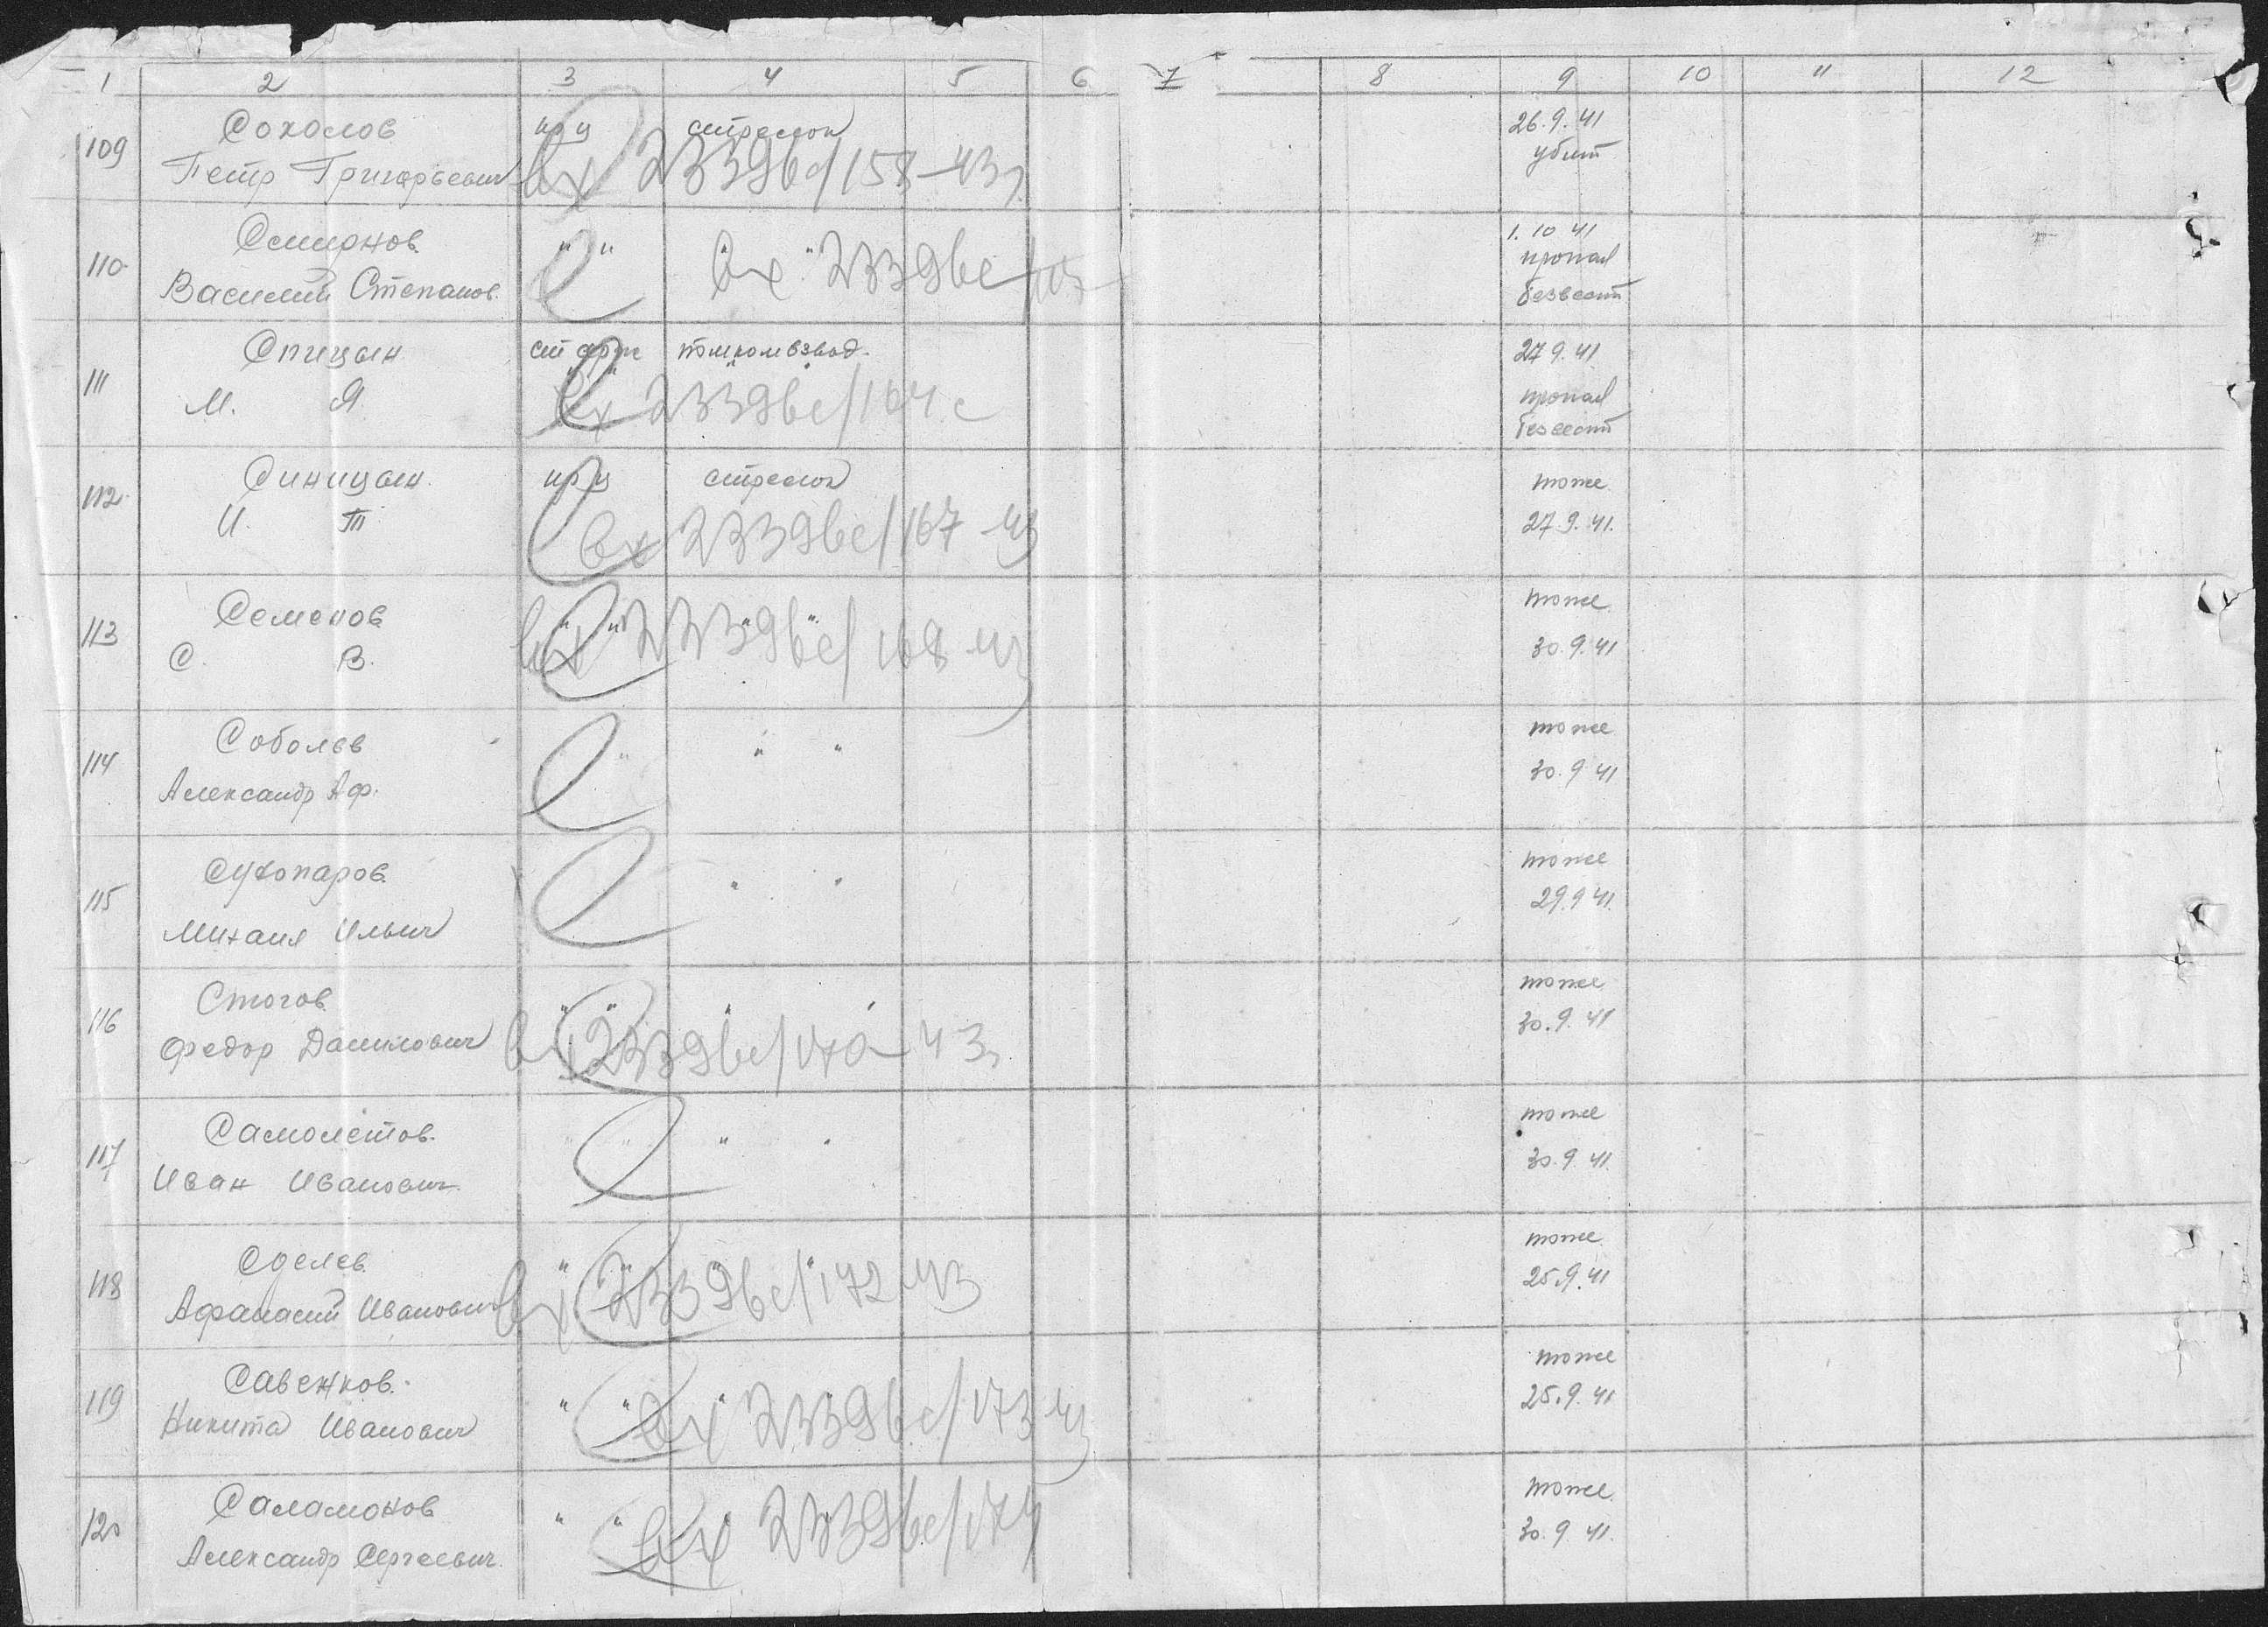 1 2 3 4 5 6 7 8 9 10 11 12
109 Соколов кр-ц стрелок 26.9.41
Петр Григорьевич Вх 23396с/158-43г убит
110 Смирнов " " " " 1.10 41
Василий Степанов. Вх 23396с пропал
безвест
111 Спицын ст серж помкомвзвод. 27 9.41
М. Я. Вх 23396с/164 с пропал
безвест
112 Синицын кр-ц стрелок тоже
И. Т. Вх 23396с/167 43 27 9.41.
113 Семенов " " " " тоже
С. В. Вх 23396с/168 43 30.9.41
114 Соболев " " " тоже
Александр Аф. 30.9 41
115 Сухопаров. " " тоже
Михаил Ильич 29.9 41.
116 Стогов " " " " тоже
Федор Данилович Вх 23396с/170-43г 30.9.41
117 Самолетов. " " " " тоже
Иван Иванович. 30.9 41.
118 Сделев " " " " тоже
Афанасий Иванович Вх 23396с/172 43 25.9.41
119 Савенков. " " " " тоже
Никита Иванович Вх 23396с/173 43 25.9.41
120 Саламонов " " " " тоже
Александр Сергеевич. Вх 23396с/174 30.9 41.